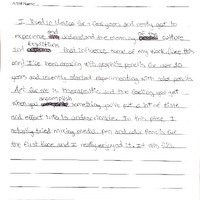 I lived in Venice for 7 years and really got to
experience and understand the amazing culture
and of the traditions that influence some of my work. (like this
pen). I've been drawing with graphite pencils for over 30
years and recently started experimenting with color pencils.
Art for me is therapeutic and the feeling you get
when you accomplish something you've put a lot of time
and effort into is undescribable. In this piece I
actually tried mixing media. Pen and color pencils for
the first time and I really enjoyed it. It was fun.